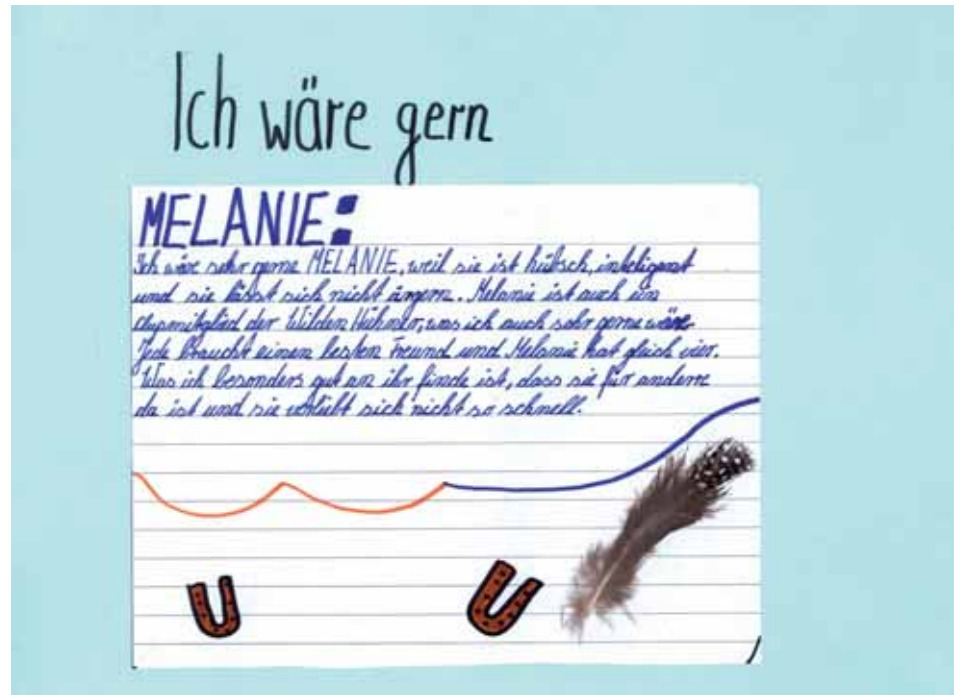 Ich wäre gern
MELANIE:
Ich wäre sehr gerne MELANIE, weil sie ist hübsch, inteligent
und sie lässt sich nicht ärgern. Melanie ist auch ein
Clupmitglied der Wilden Hühner, was ich auch sehr gerne wäre.
Jede braucht einen besten Freund und Melanie hat gleich vier.
Was ich besonders gut an ihr finde ist, dass sie für andere
da ist und sie verliebt sich nicht so schnell.